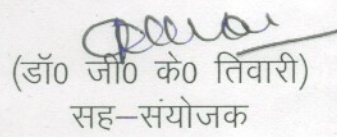 (डॉ0 जी0 के0 तिवारी)
सह–संयोजक